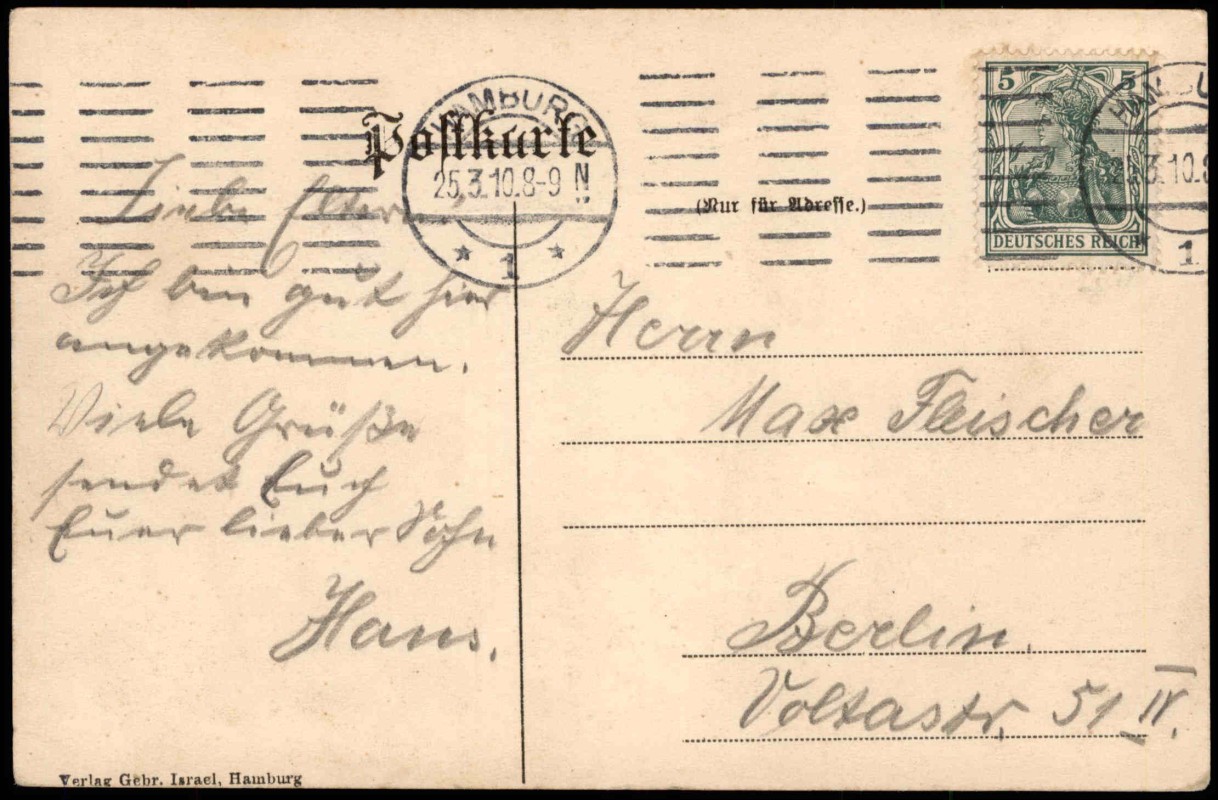 Postkarte
HAMBURG
25.3.10.8-9 N
* 1 *
(Nur für Adresse.)
5 5
DEUTSCHES REICH
HAMBU
3.10.8
1
Liebe Eltern
Ich bin gut hier
angekommen.
Viele Grüße
sendet Euch
Euer lieber Sohn
Hans.
Herrn
Max Fleischer
Berlin.
Voltastr. 51 IV.
Verlag Gebr. Israel, Hamburg